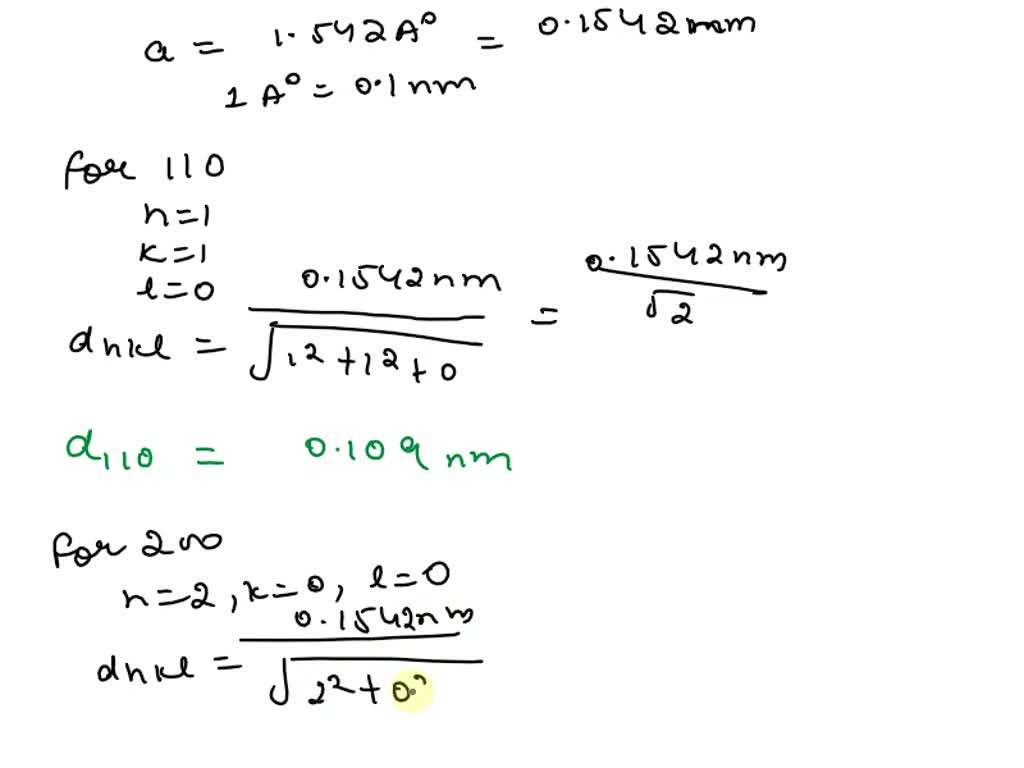 a = 1.542A° = 0.1542mm
1 A° = 0.1 nm
for 110
h=1
k=1
l=0
dhkl = 0.1542nm / √1²+1²+0 = 0.1542nm / √2
d110 = 0.109 nm
for 200
h=2, k=0, l=0
dhkl = 0.1542nm / √2²+0²